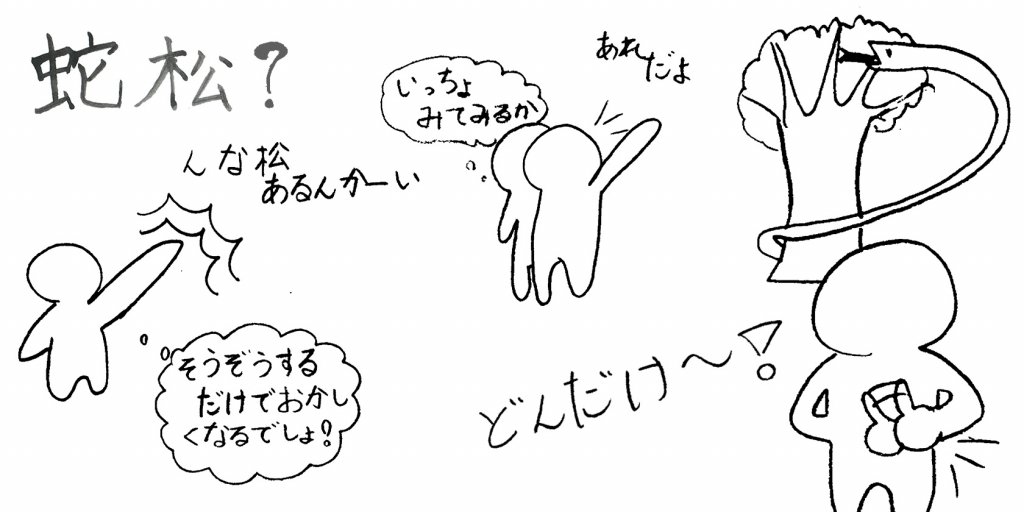 蛇松?
んな松
あるんかーい
そうぞうする
だけでおかし
くなるでしょ?
いっちょ
みてみるか
あれ
だよ
どんだけ〜!